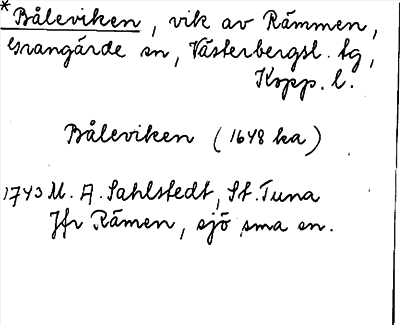 *Båleviken, vik av Rämmen,
Grangärde sn, Västerbergsl. tg,
Kopp. l.
Båleviken (1648 ka)
1743 M. A. Sahlstedt, St. Tuna
Jfr Rämen, sjö sma sn.